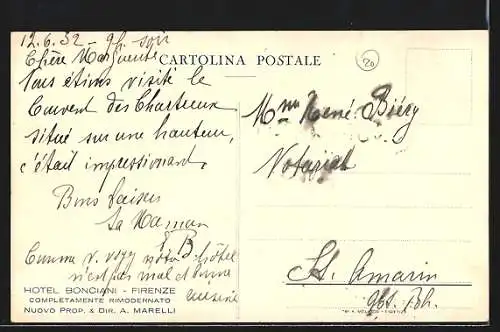 12.6.32 - 9h. soir
Chère Marguerite
CARTOLINA POSTALE
20
Nous étions visité le
Couvent des Chartreux
situé sur une hauteur,
c'était impressionant.
Bons baisers
ta Maman
B.
Comme v. voyez notre hôtel
n'est pas mal et bonne
cuisine
HOTEL BONCIANI - FIRENZE
COMPLETAMENTE RIMODERNATO
NUOVO PROP. & DIR. A. MARELLI
Mme René
Notariat
St. Amarin